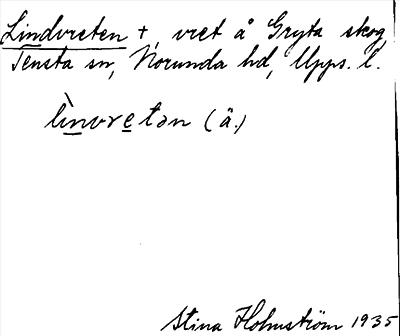 Lindvreten +, vret å Gryta skog
Tensta sn, Norunda hd, Upps. l.
lìnvretən (ä.)
Stina Holmström 1935